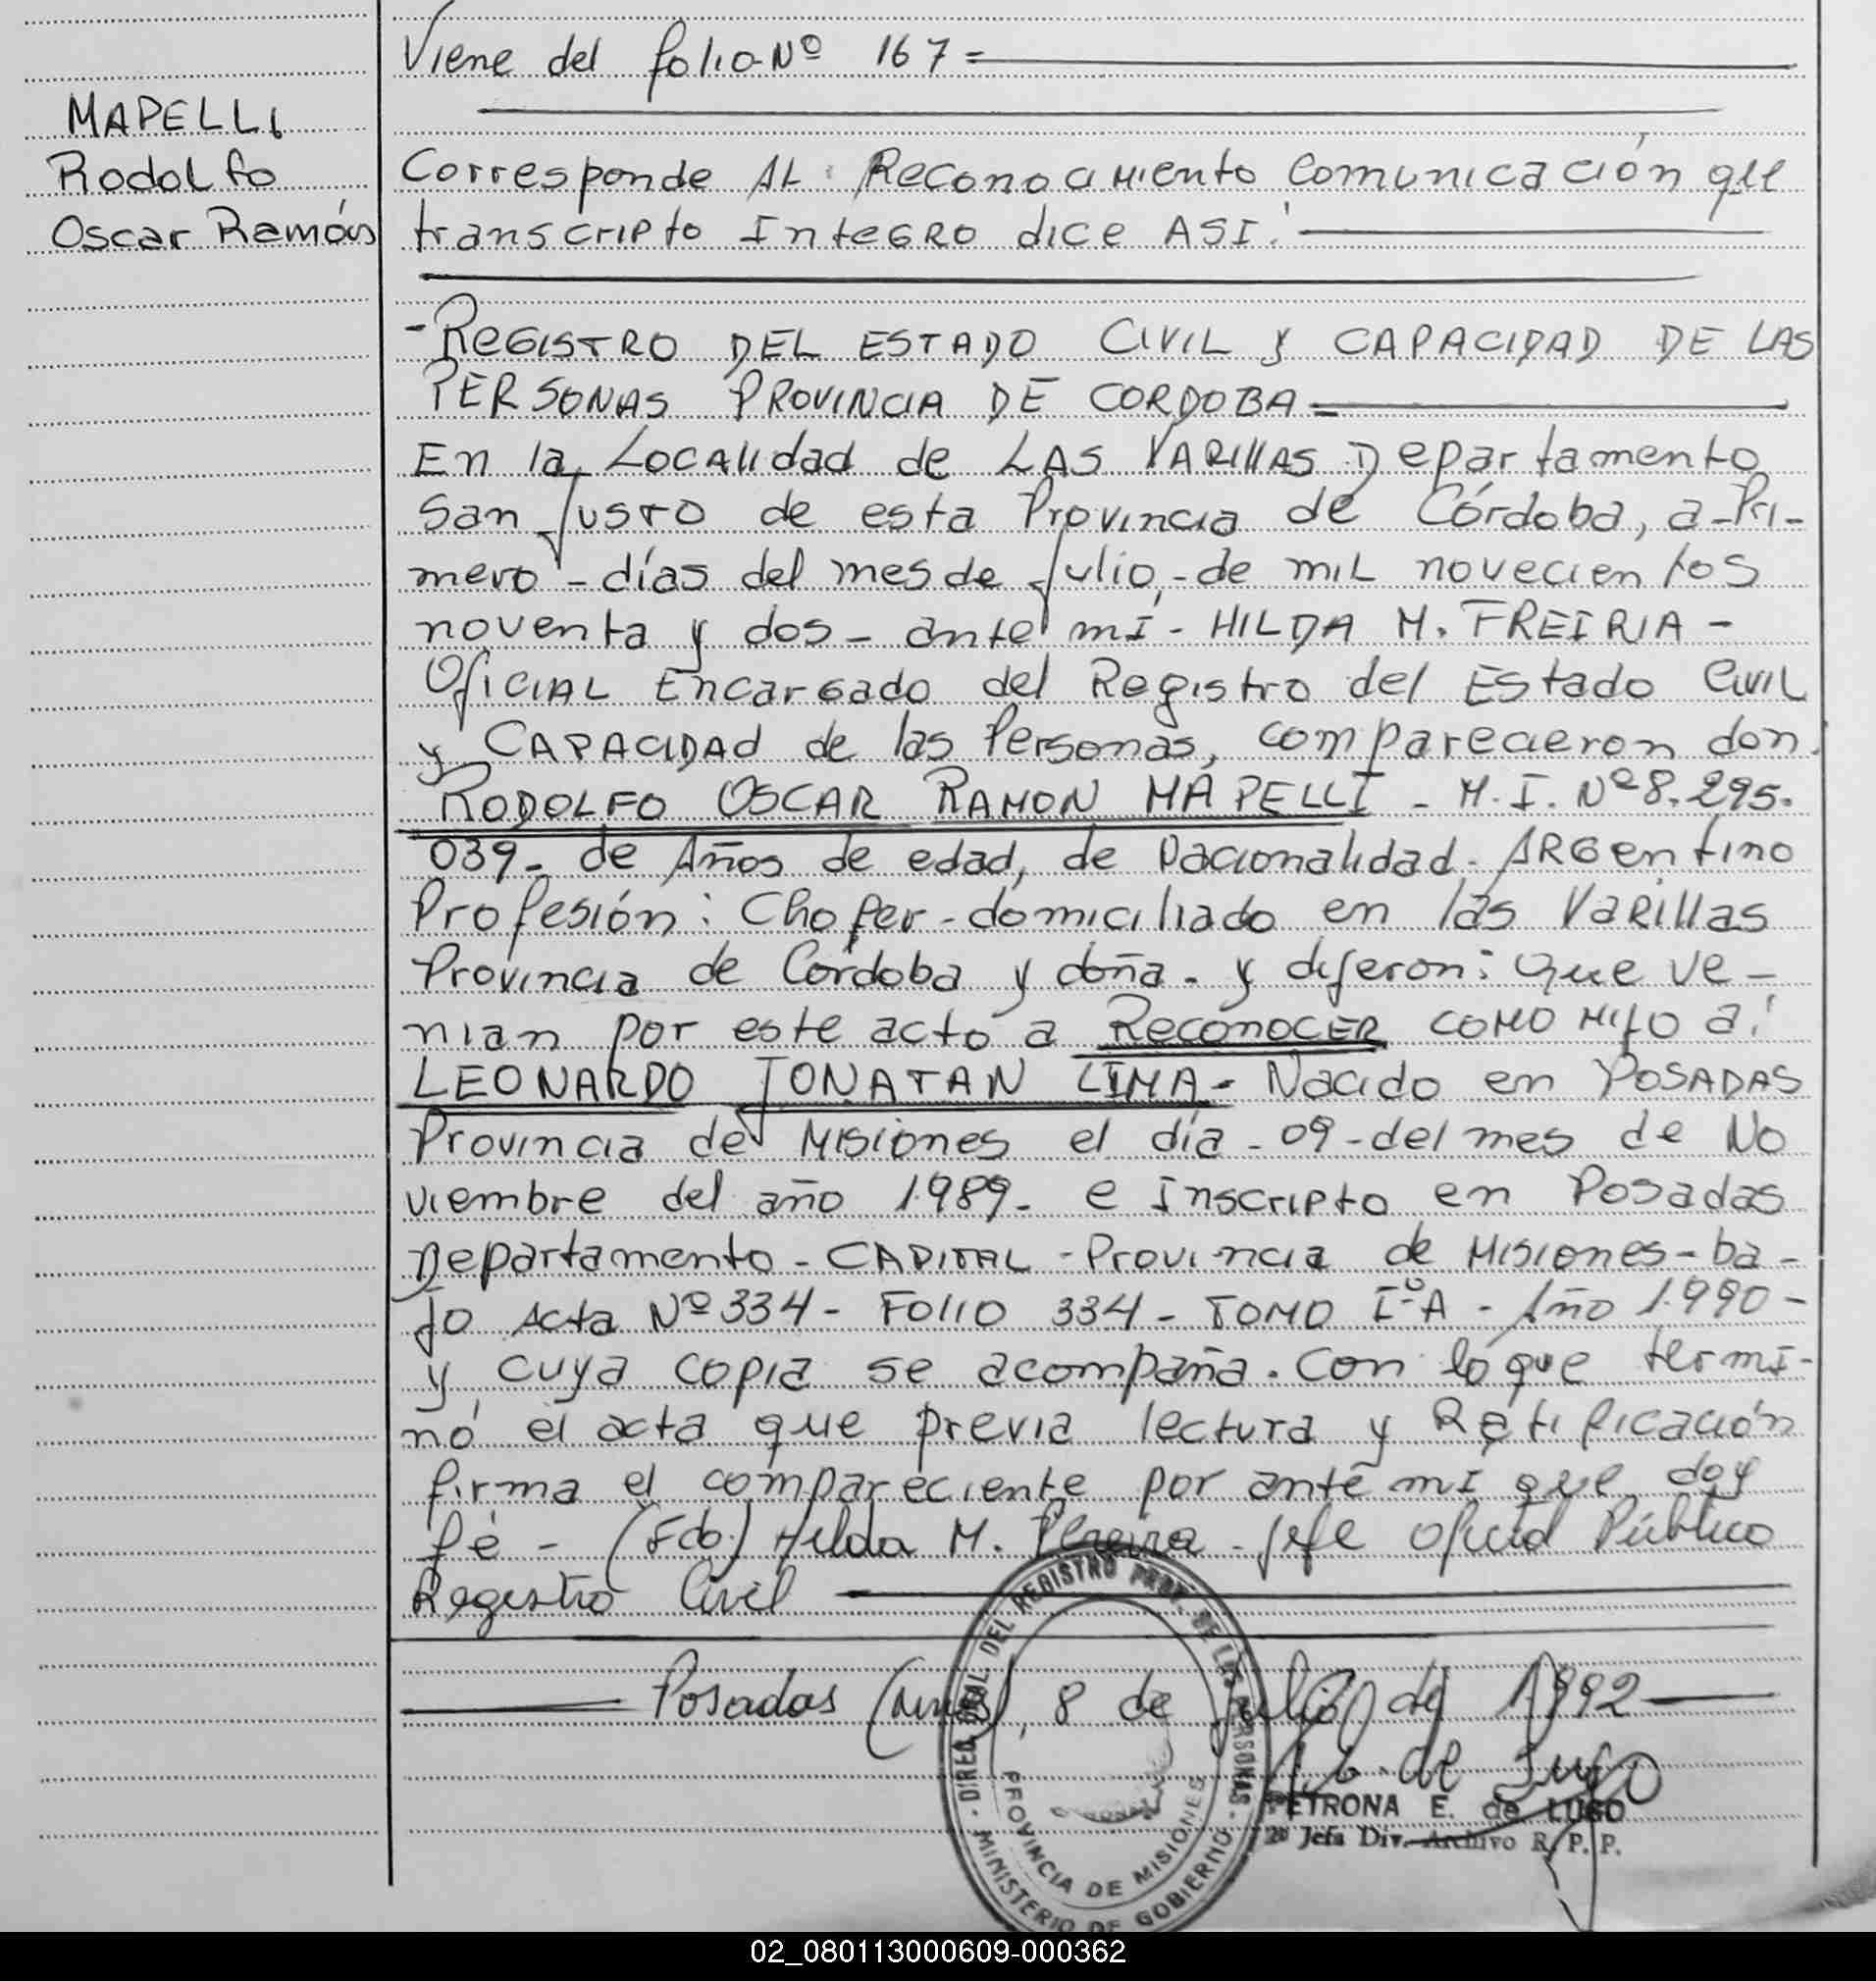 Viene del folio Nº 167=
MAPELLI
Rodolfo
Oscar Ramón
Corresponde AL Reconocimiento comunicación que
transcripto Integro dice ASI:
-REGISTRO DEL ESTADO CIVIL y CAPACIDAD DE LAS
PERSONAS PROVINCIA DE CORDOBA=
En la Localidad de LAS VARILLAS Departamento
San Justo de esta Provincia de Córdoba, a-Pri-
mero-días del mes de Julio-de mil novecientos
noventa y dos-ante mí-HILDA M. FREIRIA-
Oficial Encargado del Registro del Estado Civil
y CAPACIDAD de las Personas, comparecieron don.
RODOLFO OSCAR RAMON MAPELLI - M.I. Nº 8.295.
039- de Años de edad, de nacionalidad-ARGentino
Profesión: Chofer-domiciliado en las Varillas
Provincia de Córdoba y doña- y dijeron: que ve-
nian por este acto a RECONOCER como HIJO a:
LEONARDO JONATAN LIMA- Nacido en POSADAS
Provincia de Misiones el día-09-del mes de No
viembre del año 1989- e Inscripto en Posadas
Departamento-CAPITAL-Provincia de Misiones-ba-
jo Acta Nº 334- Folio 334- TOMO Iº-A- Año 1.990-
y cuya copia se acompaña. Con lo que termi-
nó el acta que previa lectura y Ratificación
firma el compareciente por ante mi que doy
fé- (Fdo.) Hilda M. Pereira-Jefe Oficial Público
Registro Civil
Posadas (Mnes), 8 de Julio de 1992
P.E. de Lugo
PETRONA E. de LUGO
2ª Jefa Div. Archivo R. P. P.
DIREC. GRAL. DEL REGISTRO PROV. DE LAS PERSONAS-
PROVINCIA DE MISIONES
MINISTERIO DE GOBIERNO
02_080113000609-000362